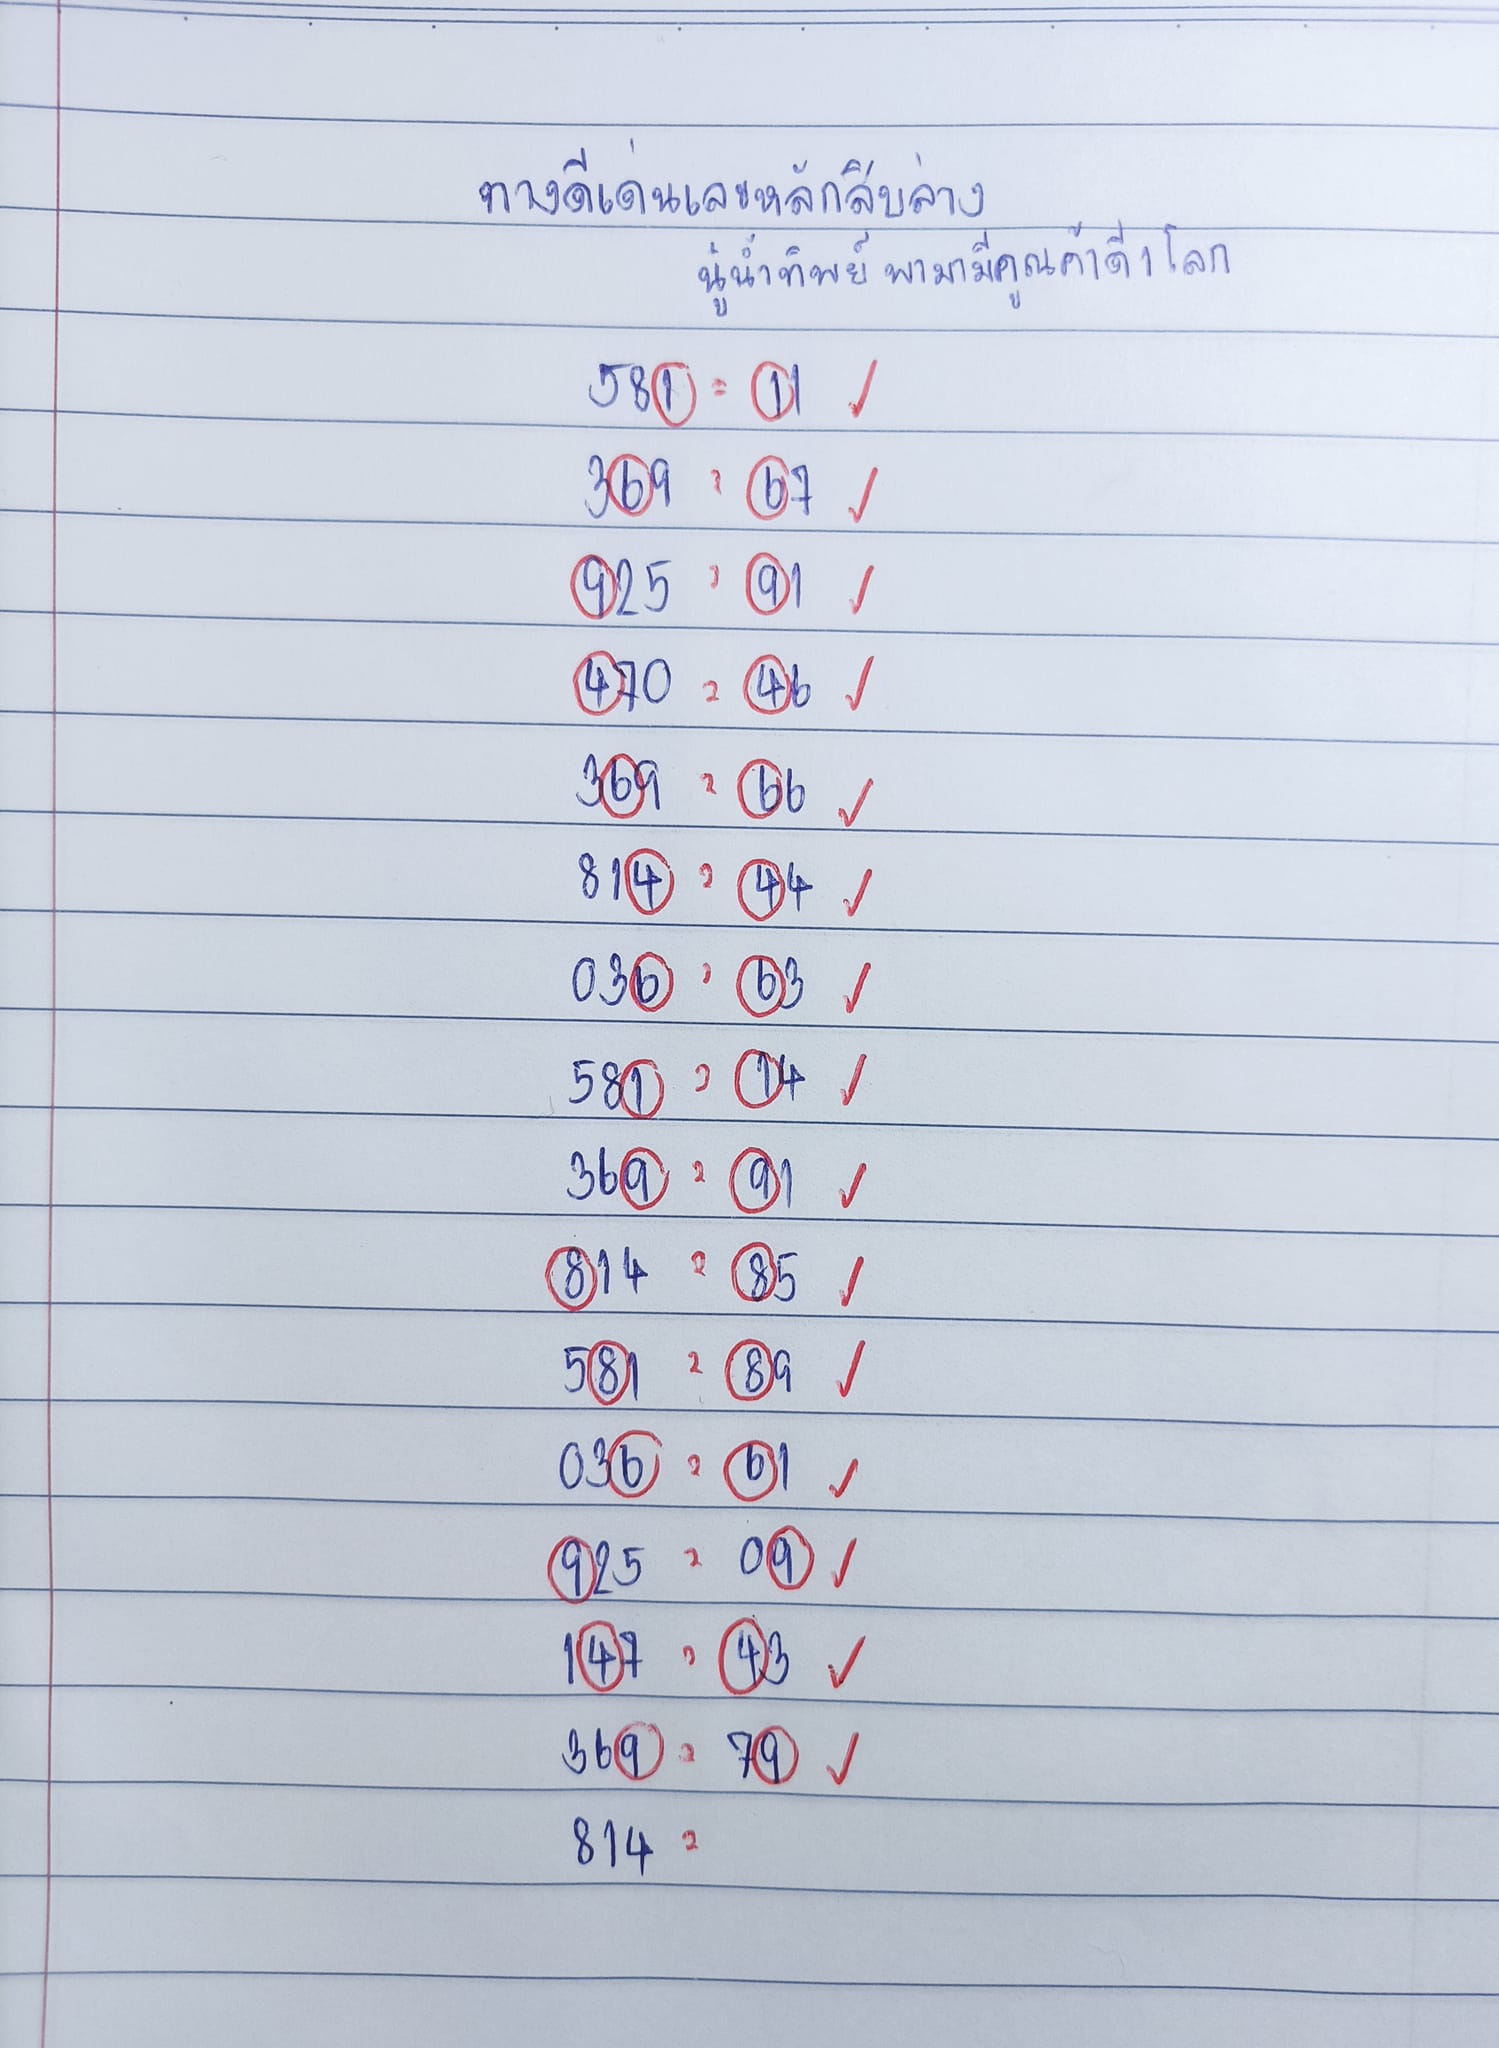 ทางดีเด่นเลขหลักสิบล่าง
นู๋น้ำทิพย์ พามามีคูณค้าดี1 โลก
581 = 11 ✓
369 = 67 ✓
925 = 91 ✓
470 = 46 ✓
369 = 66 ✓
814 = 44 ✓
036 = 63 ✓
581 = 14 ✓
369 = 91 ✓
814 = 85 ✓
581 = 89 ✓
036 = 61 ✓
925 = 09 ✓
147 = 43 ✓
369 = 79 ✓
814 =